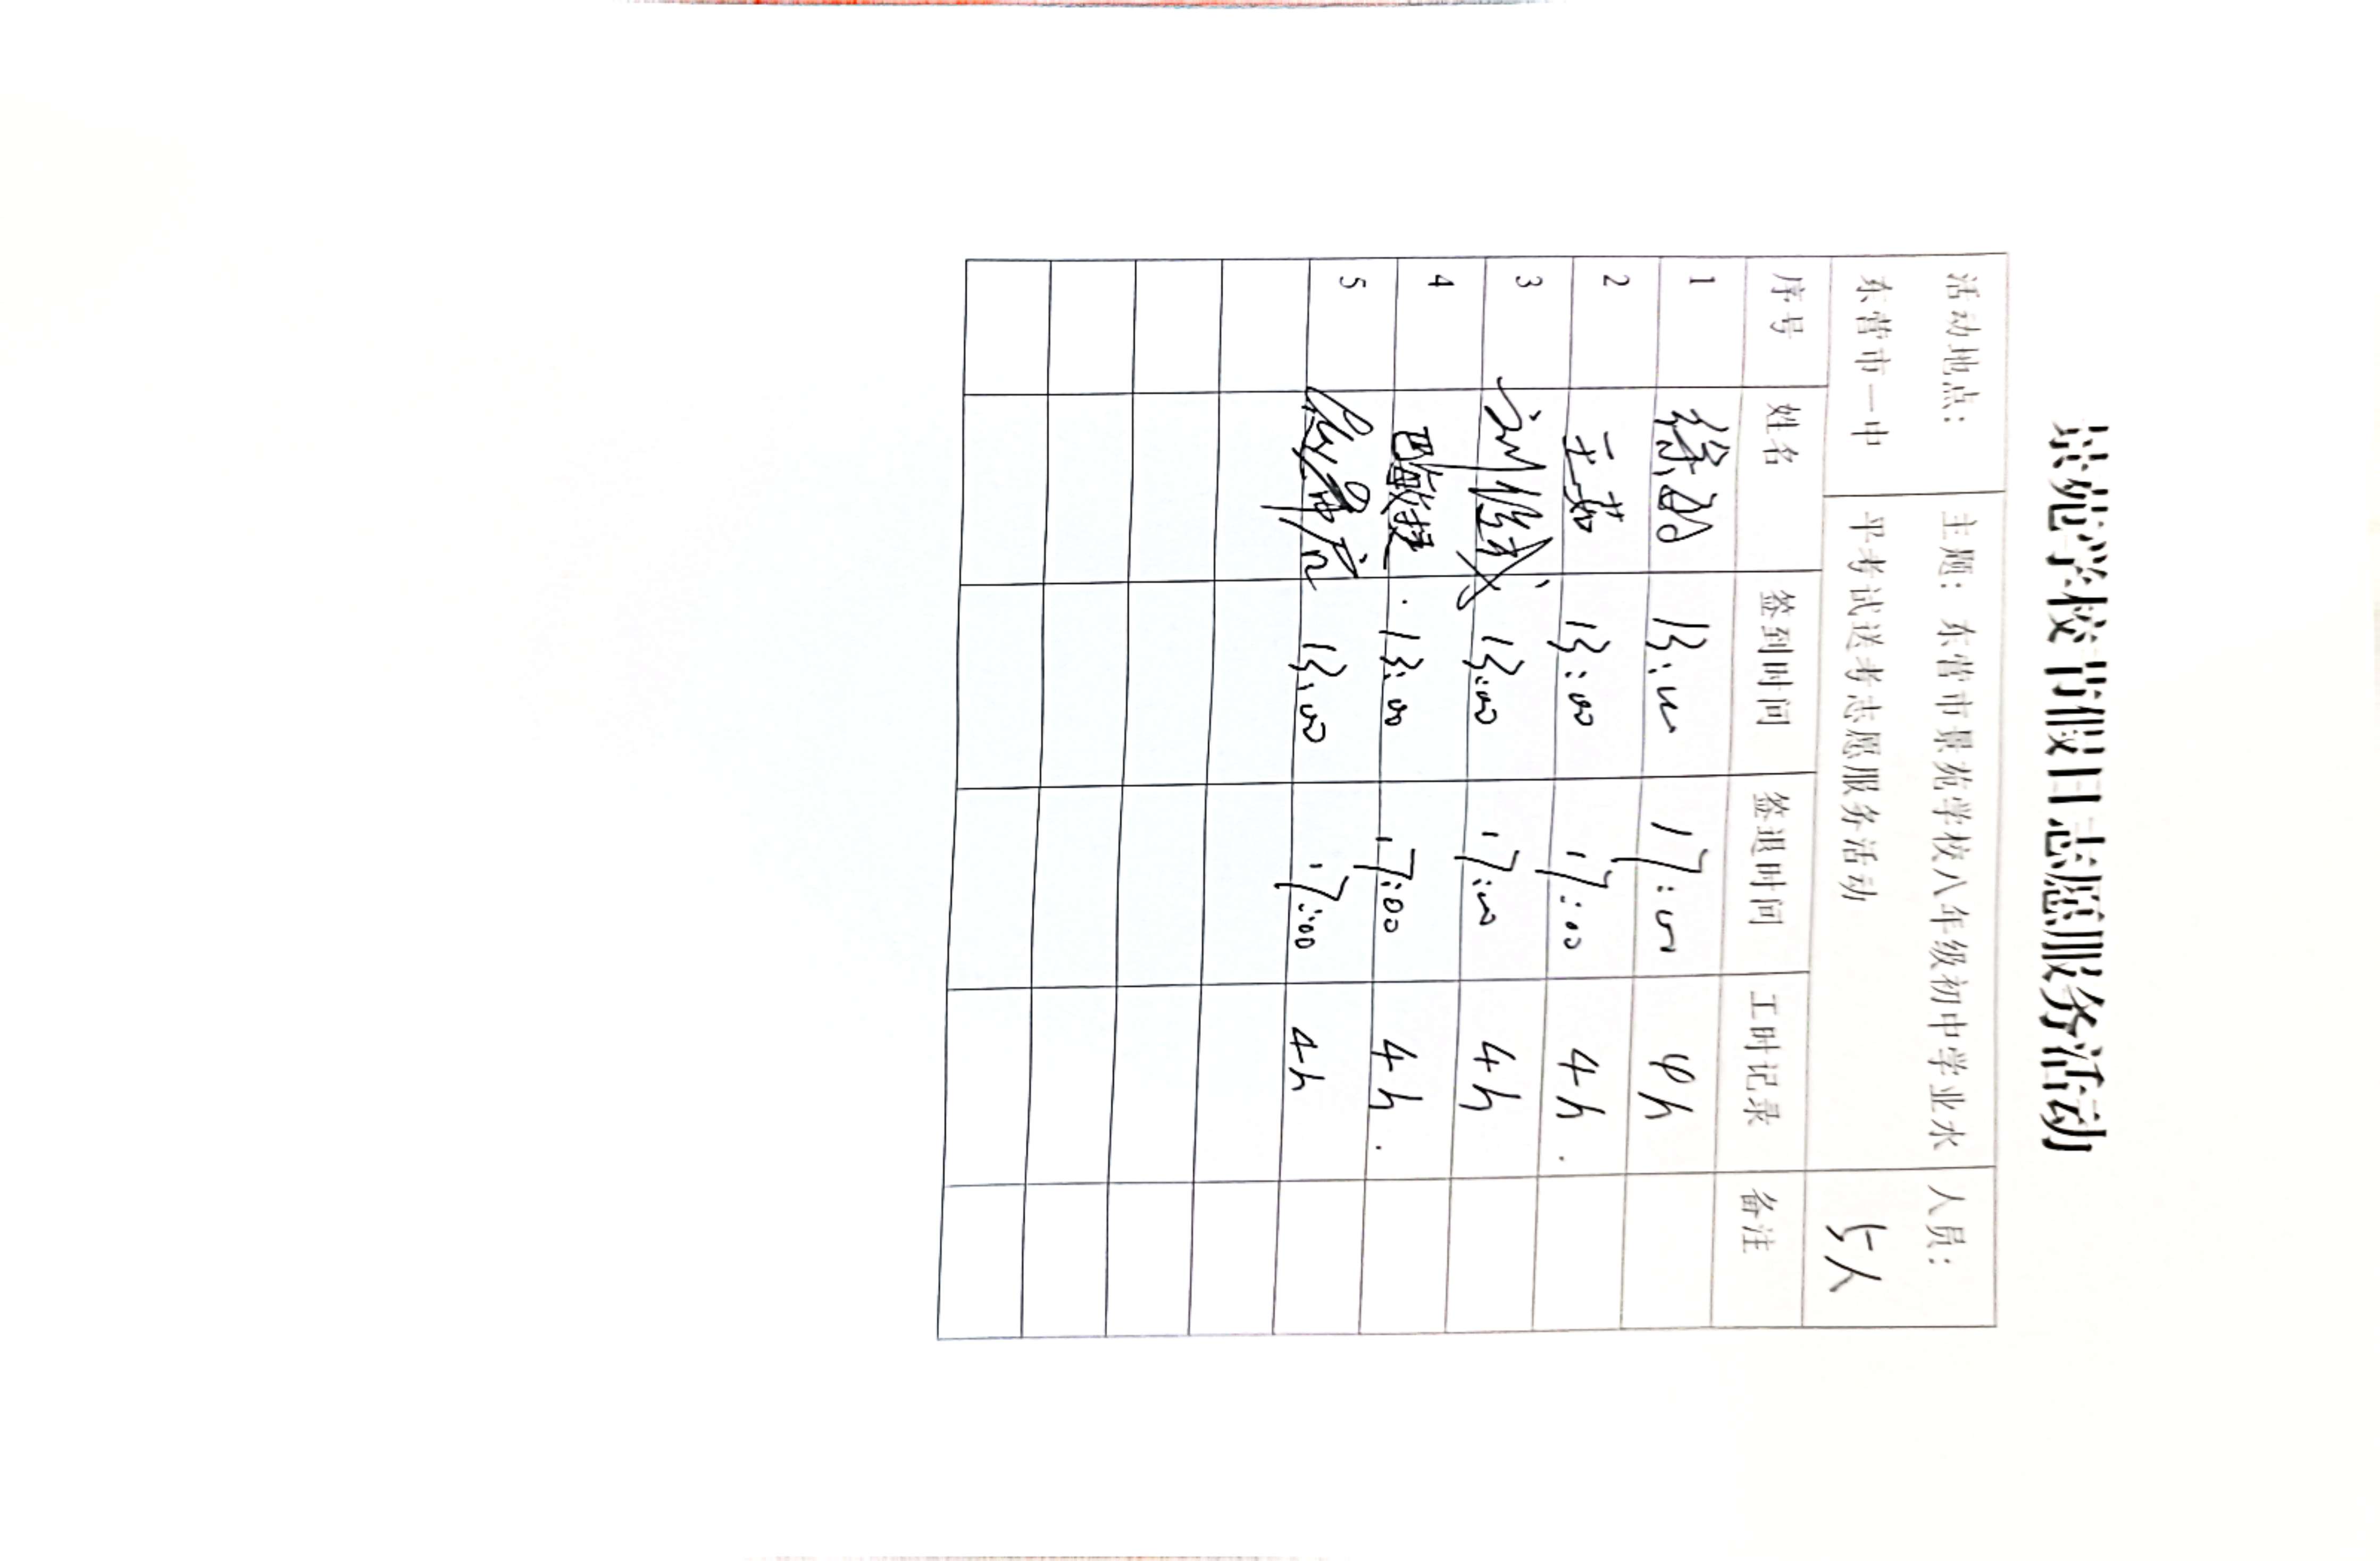 景苑学校节假日志愿服务活动
活动地点： 主题：东营市景苑学校八年级初中学业水 人员：
东营市一中 平考试送考志愿服务活动 5人
序号 姓名 签到时间 签退时间 工时记录 备注
1 13:00 17:00 4h
2 王茹 13:00 17:00 4h.
3 13:00 17:00 4h
4 13:00 17:00 4h.
5 13:00 17:00 4h